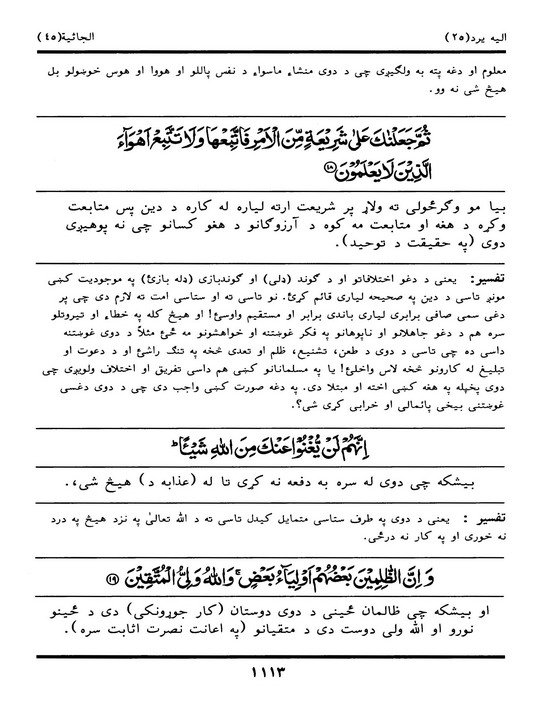 الیه یرد(٢٥)
الجاثیة(٤٥)
معلوم او دغه پته به ولگیږی چی د دوی منشاء ماسواء د نفس پاللو او هووا او هوس خوښولو بل
هیڅ شی نه وو.
ثُمَّ جَعَلْنٰكَ عَلٰى شَرِيْعَةٍ مِّنَ الْاَمْرِ فَاتَّبِعْهَا وَلَا تَتَّبِعْ اَهْوَآءَ
الَّذِيْنَ لَا يَعْلَمُوْنَ ﴿١٨﴾
بیا مو وگرځولی ته ولاړ پر شریعت ارته لیاره له کاره د دین پس متابعت
وکړه د هغه او متابعت مه کوه د آرزوگانو د هغو کسانو چی نه پوهیږی
دوی (په حقیقت د توحید).
تفسیر : یعنی د دغو اختلافاتو او د گوند (ډلی) او گوندبازی (ډله بازئ) په موجودیت کښی
مونږ تاسی د دین په صحیحه لیاری قائم کړئ. نو تاسی ته او ستاسی امت ته لازم دی چی پر
دغی سمی صافی برابری لیاری باندی برابر او مستقیم واوسئ! او هیڅ کله په خطاء او تیروتلو
سره هم د دغو جاهلانو او ناپوهانو په فکر غوښتنه او خواهشونو مه ځئ مثلاً د دوی غوښتنه
داسی ده چی تاسی د دوی د طعن، تشنیع، ظلم او تعدی څخه په تنگ راشئ او د دعوت او
تبلیغ له کارونو څخه لاس واخلئ! یا په مسلمانانو کښی هم داسی تفریق او اختلاف ولویږی چی
دوی پخپله په هغه کښی اخته او مبتلا دی. په دغه صورت کښی واجب دی چی د دوی دغسی
غوښتنی بیخی پائمالی او خرابی کړی شی؟.
اِنَّهُمْ لَنْ يُّغْنُوْا عَنْكَ مِنَ اللّٰهِ شَيْـًٔا ؕ
بیشکه چی دوی له سره به دفعه نه کړی تا له (عذابه د) هیڅ شی،.
تفسیر : یعنی د دوی په طرف ستاسی متمایل کیدل تاسی ته د الله تعالیٰ په نزد هیڅ په درد
نه خوری او په کار نه درځی.
وَ اِنَّ الظّٰلِمِيْنَ بَعْضُهُمْ اَوْلِيَآءُ بَعْضٍ ۚ وَاللّٰهُ وَلِيُّ الْمُتَّقِيْنَ ﴿١٩﴾
او بیشکه چی ظالمان ځینی د دوی دوستان (کار جوړونکی) دی د ځینو
نورو او الله ولی دوست دی د متقیانو (په اعانت نصرت اثابت سره).
١١١٣